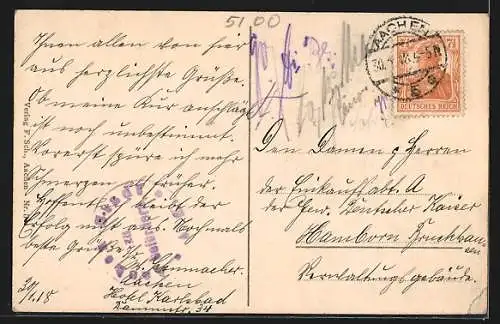 51.00
Ihnen allen von hier
aus herzlichste Grüße.
Ob meine Kur anschlägt
ist noch unbestimmt.
Vorerst spüre ich mehr
Schmerzen als früher.
Hoffentl. bleibt der
Erfolg nicht aus. Nochmals
beste Grüße
Aachen
Hotel Karlsbad
34
30/1.18
AACHEN
30.1.18. 4-5N
7½
DEUTSCHES REICH
Den Damen & Herren
der Einkauf Abt. A
der Gew. Deutscher Kaiser
Hamborn Bruckhausen
Verwaltungsgebäude.